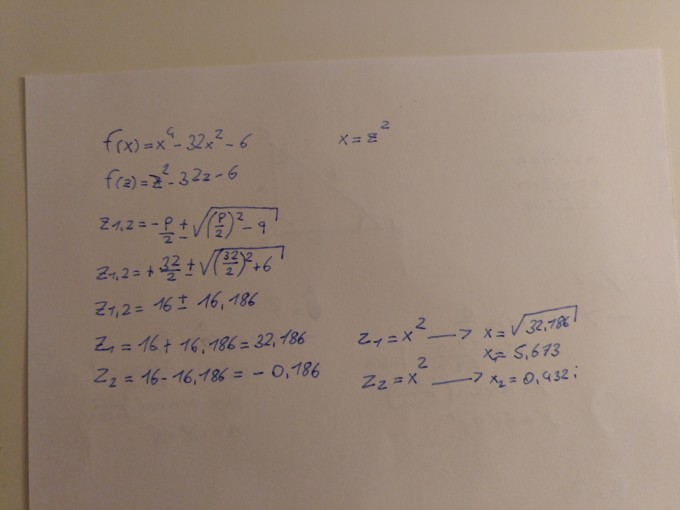 f(x)=x⁴-32x²-6
x=z²
f(z)=z²-32z-6
z1,2=-p/2±√((p/2)²-q)
z1,2=+32/2±√((32/2)²+6)
z1,2=16±16,186
z1=16+16,186=32,186
z1=x² → x=√32,186
x1=5,673
z2=16-16,186=-0,186
z2=x² → x2=0,432i